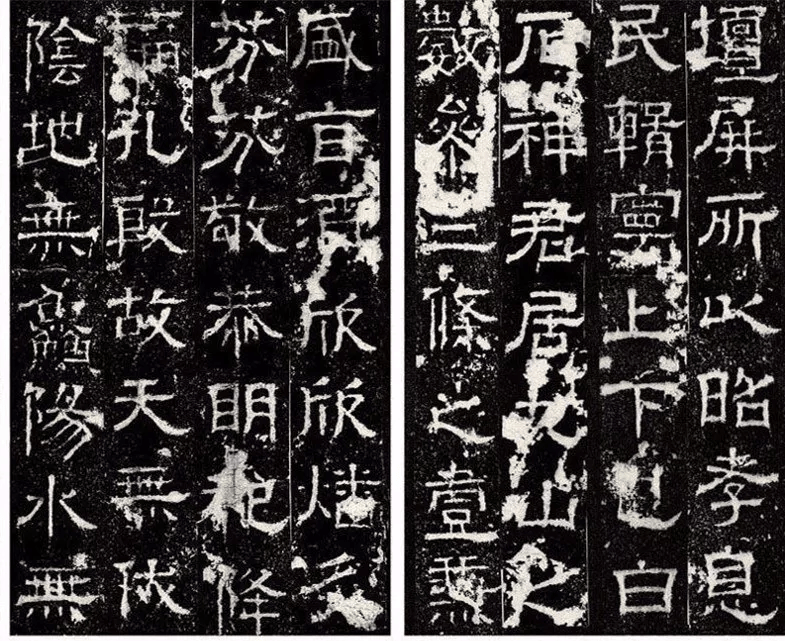 壇屏所以昭孝息
民輯寧上下也白
石神君居九山之
數參三條之壹兼
盛旨酒欣欣燔炙
芬芬敬恭明祀降
福孔殷故天無伏
陰地無鱻陽水無